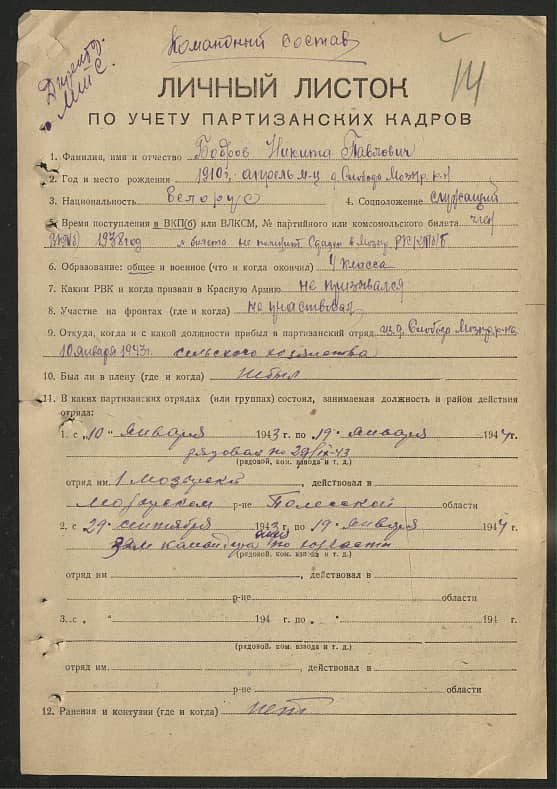 Командний состав
Директор
МТС.
14
ЛИЧНЫЙ ЛИСТОК
ПО УЧЕТУ ПАРТИЗАНСКИХ КАДРОВ
1. Фамилия, имя и отчество Бобров Никита Павлович
2. Год и место рождения 1910г. апрель м-ц д. Слобода Мозыр. р-н
3. Национальность белорус 4. Соцположение служащий
5. Время поступления в ВКП(б) или ВЛКСМ, № партийного или комсомольского билета член
ВКП(б) 1938 год № билета не помнит Сдавал в Мозыр РК КП(б)Б
6. Образование: общее и военное (что и когда окончил) 4 класса
7. Каким РВК и когда призван в Красную Армию не призывался
8. Участие на фронтах (где и когда) не участвовал
9. Откуда, когда и с какой должности прибыл в партизанский отряд из д. Слобода Мозыр. р-на
10 января 1943г. сельского хозяйства
10. Был ли в плену (где и когда) не был
11. В каких партизанских отрядах (или группах) состоял, занимаемая должность и район действия
отряда:
1. с „10" января 1943 г. по 19 „ января 1944 г.
рядовой по 29/IX-43
(рядовой, ком. взвода и т. д.)
отряд им. 1 Мозырский, действовал в
Мозырском р-не Полесской области
2. с 29 „ сентября 1943 г. по 19 „ января 1944 г.
зам командира по хозчасти
(рядовой, ком. взвода и т. д.)
отряд им. , действовал в
р-не области
3. с „ " 194 г. по „ " 194 г.
(рядовой, ком. взвода и т. д.)
отряд им. , действовал в
р-не области
12. Ранения и контузии (где и когда) нет